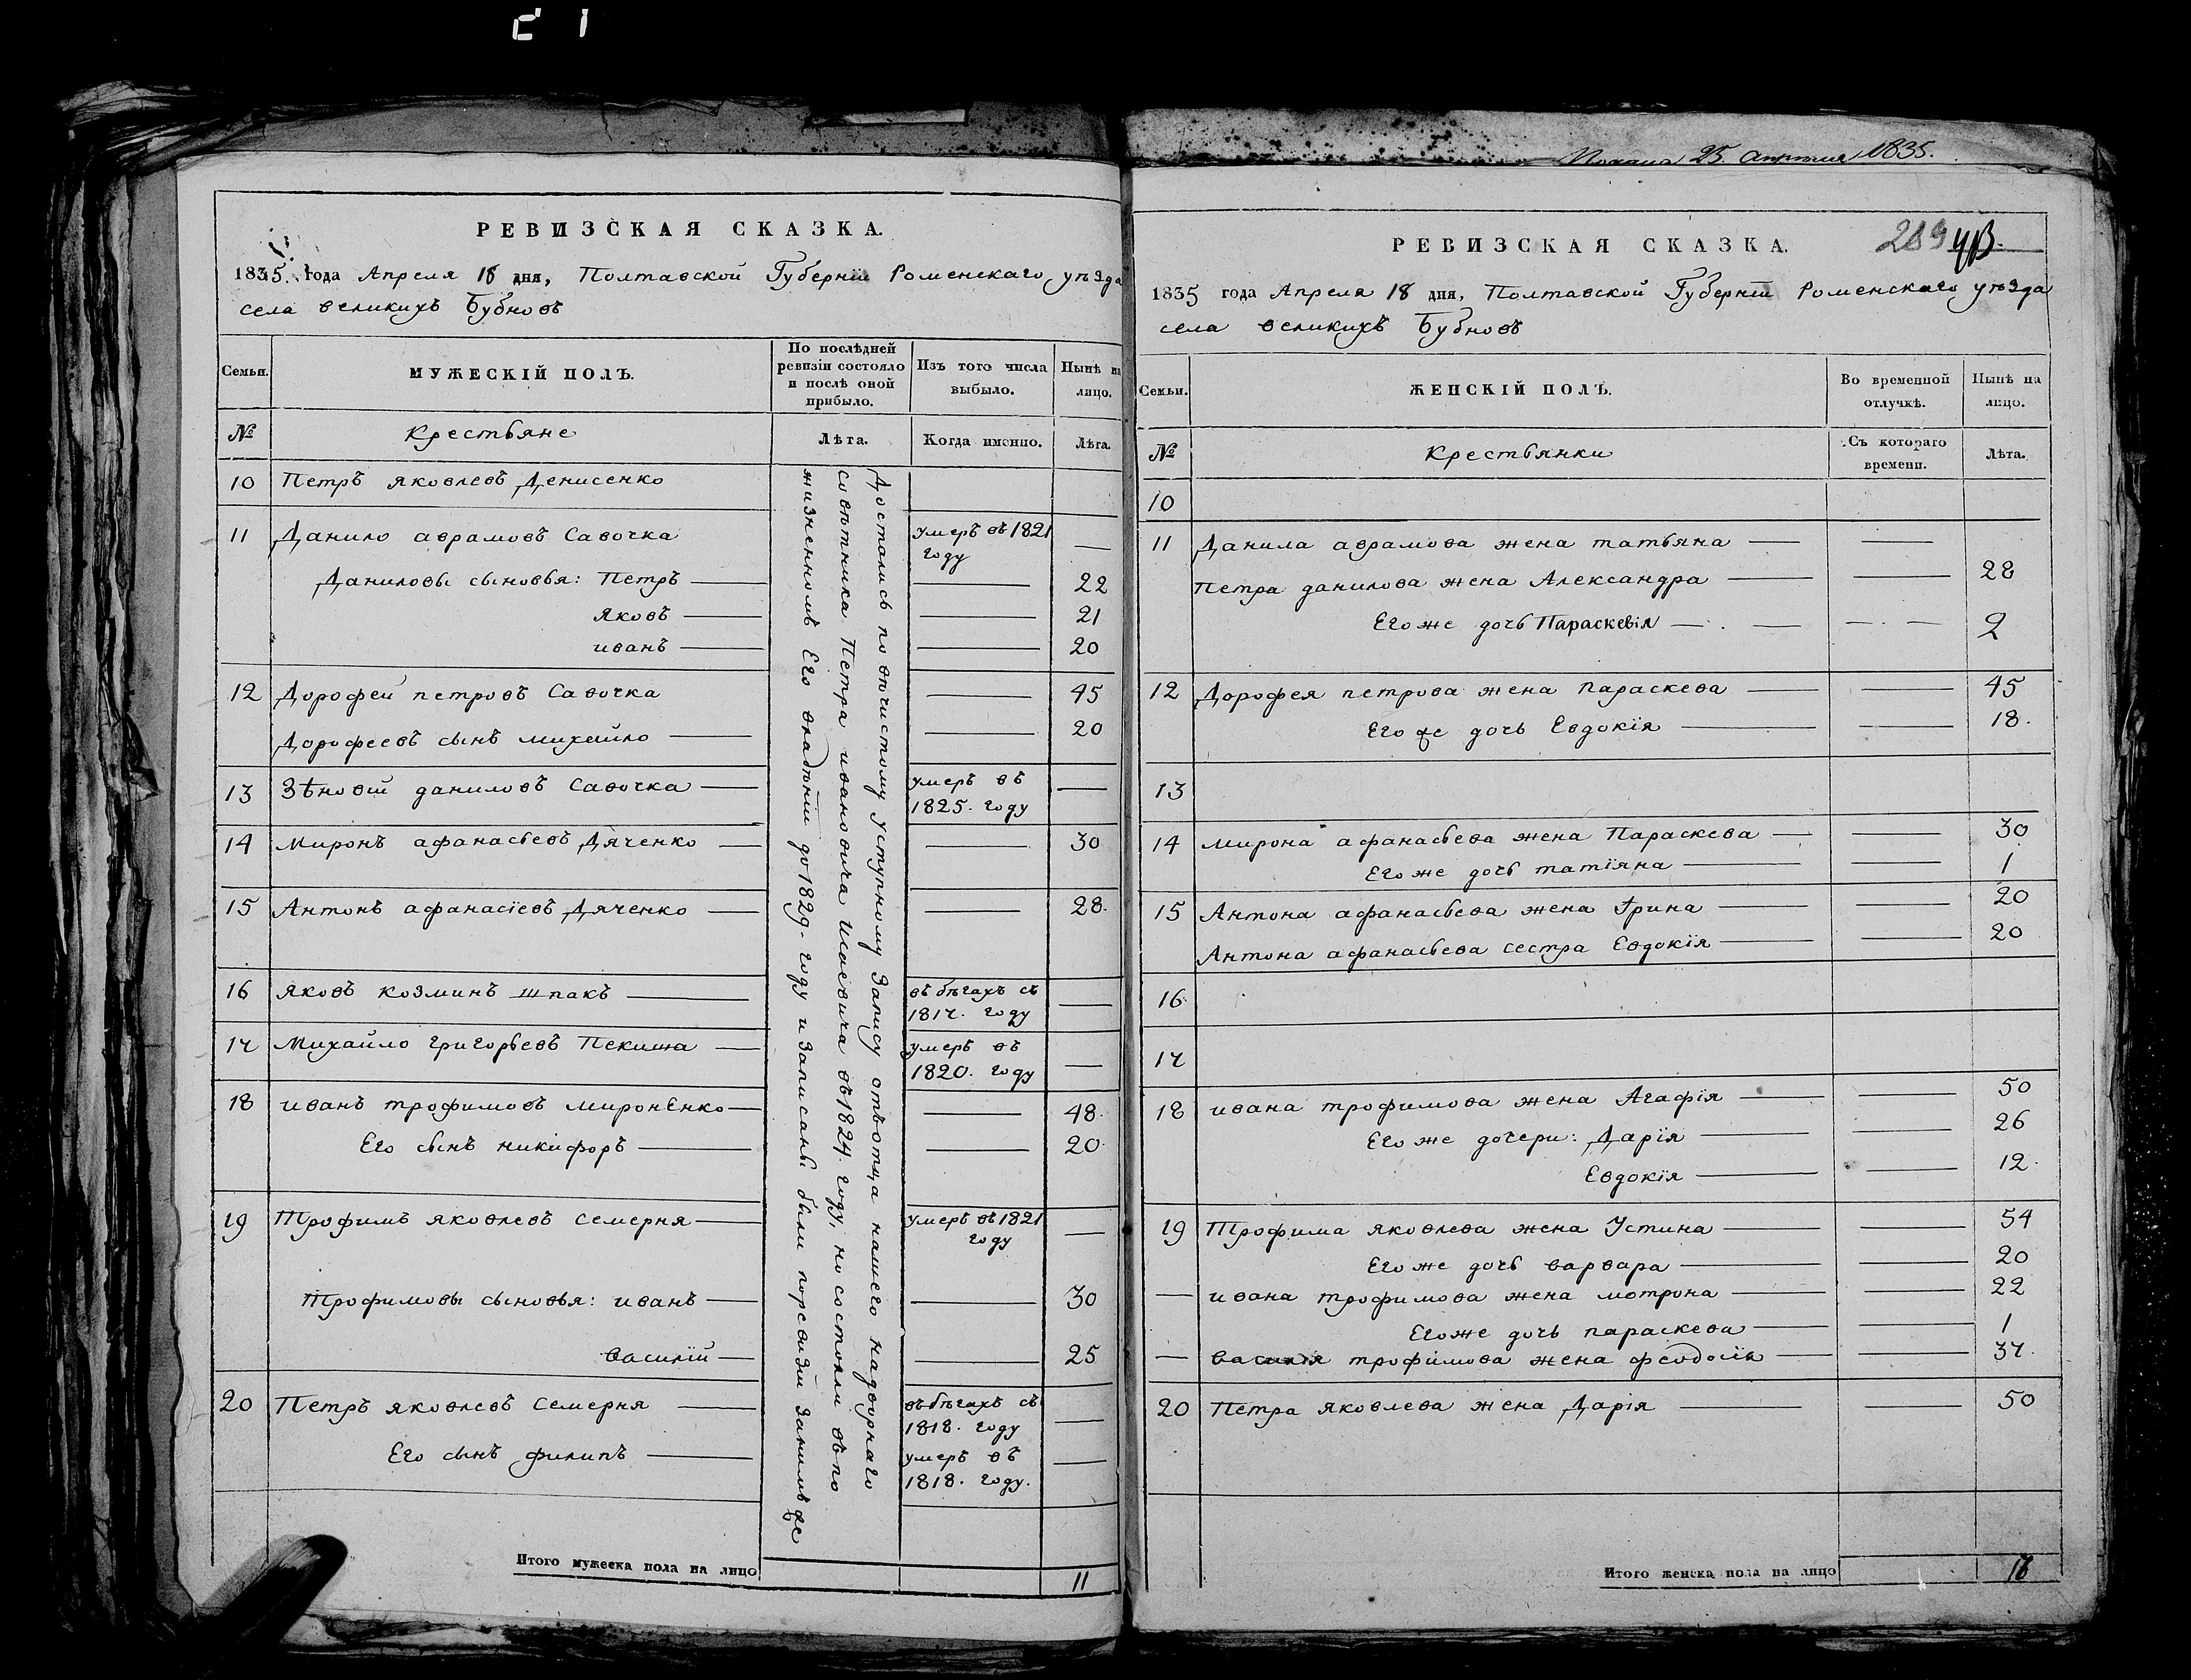 РЕВИЗСКАЯ СКАЗКА.
1835. года Апреля 18 дня, Полтавской Губерніи Роменскаго уѣзда
села великихъ Бубновъ
Семьи.
МУЖЕСКІЙ ПОЛЪ.
По послѣдней ревизіи состояло и послѣ оной прибыло.
Изъ того числа выбыло.
Нынѣ на лицо.
№
Крестьяне
Лѣта.
Когда именно.
Лѣта.
10 Петръ яковлевъ Денисенко
11 Данило аврамовъ Савочка умеръ въ 1821 году —
Даниловы сыновья: Петръ — — 22
яковъ — — 21
иванъ — — 20
12 Дорофей петровъ Савочка — 45
Дорофеевъ сынъ михайло — — 20
13 Зѣновій даниловъ Савочка — умеръ въ 1825. году —
14 Миронъ афанасьевъ Дяченко — — 30
15 Антонъ афанасіевъ Дяченко — — 28.
16 яковъ козминъ шпакъ — въ бѣгахъ съ 1817. году —
17 Михайло григорьевъ Пекиша — умеръ въ 1820. году —
18 иванъ трофимовъ миронЕнко — — 48.
Его сынъ никифоръ — — 20.
19 Трофимъ яковлевъ семерня — умеръ въ 1821 году —
Трофимовы сыновья: иванъ — — 30
василій — — 25
20 Петръ яковлевъ семерня — въ бѣгахъ съ 1818. году —
Его сынъ филипъ — умеръ въ 1818. году. —
Достались по вѣчистому уступному Запису отъ отца нашего надворнаго
совѣтника Петра ивановича в 1824. году, но состояли въ по
жизненномъ Его владѣніи до 1829. году и записаны были поревизіи занимъ же
Итого мужеска пола на лицо 11
Подана 25. апреля 1835.
289
РЕВИЗСКАЯ СКАЗКА.
1835 года Апреля 18 дня, Полтавской Губерніи Роменскаго уѣзда
села великихъ Бубновъ
Семьи.
ЖЕНСКІЙ ПОЛЪ.
Во временной отлучкѣ.
Нынѣ на лицо.
№
Крестьянки
Съ котораго времени.
Лѣта.
10
11 Данила аврамова жена татьяна — —
Петра данилова жена Александра — — 28
Его же дочь Параскевія — — 2
12 Дорофея петрова жена параскева — — 45
Его же дочь Евдокія — — 18.
13
14 мирона афанасьева жена Параскева — — 30
Его же дочь татіяна — — 1
15 Антона афанасьева жена Ірина — — 20
Антона афанасьева сестра Евдокія — — 20
16.
17
18 ивана трофимова жена Агафія — — 50
Его же дочери: Дарія — — 26
Евдокія — — 12.
19 Трофима яковлева жена Устина — — 54
Его же дочь варвара — — 20
— ивана трофимова жена мотрона — — 22
Его же дочь параскева — — 1
— василія трофимова жена феодосія — — 37.
20 Петра яковлева жена Дарія — — 50
Итого женска пола на лицо